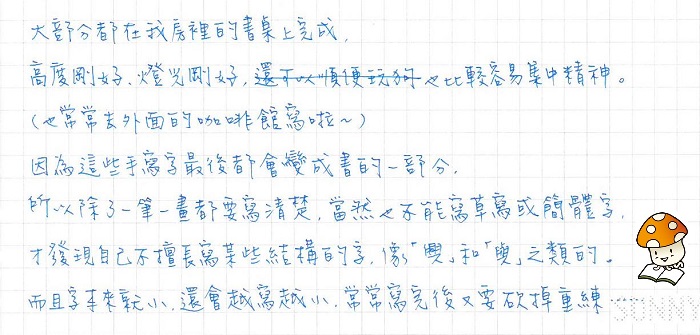 大部分都在我房裡的書桌上完成,
高度剛好、燈光剛好,還可以順便玩狗也比較容易集中精神。
(也常常去外面的咖啡館寫啦~)
因為這些手寫字最後都會變成書的一部分,
所以除了一筆一畫都要寫清楚,當然也不能寫草寫或簡體字,
才發現自己不擅長寫某些結構的字,像「興」和「與」之類的。
而且字本來就小,還會越寫越小,常常寫完後又要砍掉重練……
SONNI